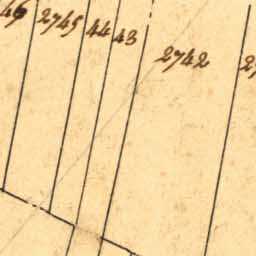 46 2745 44 43 2742